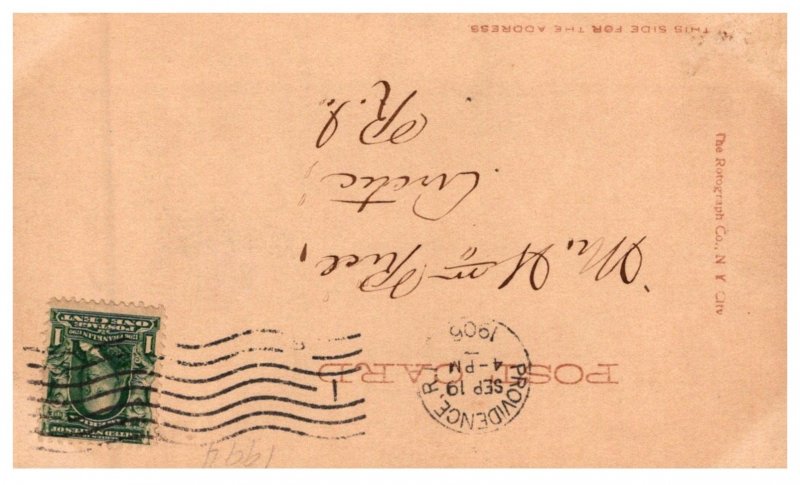 1994
PROVIDENCE, R.I.
SEP 19
4-PM
1906
POST CARD
1
UNITED STATES OF
AMERICA
1706 FRANKLIN 1790
1 1
POSTAGE
ONE CENT
Mr. Wm. Rice,
Arctic
R.I.
The Rotograph Co., N. Y. City
THIS SIDE FOR THE ADDRESS